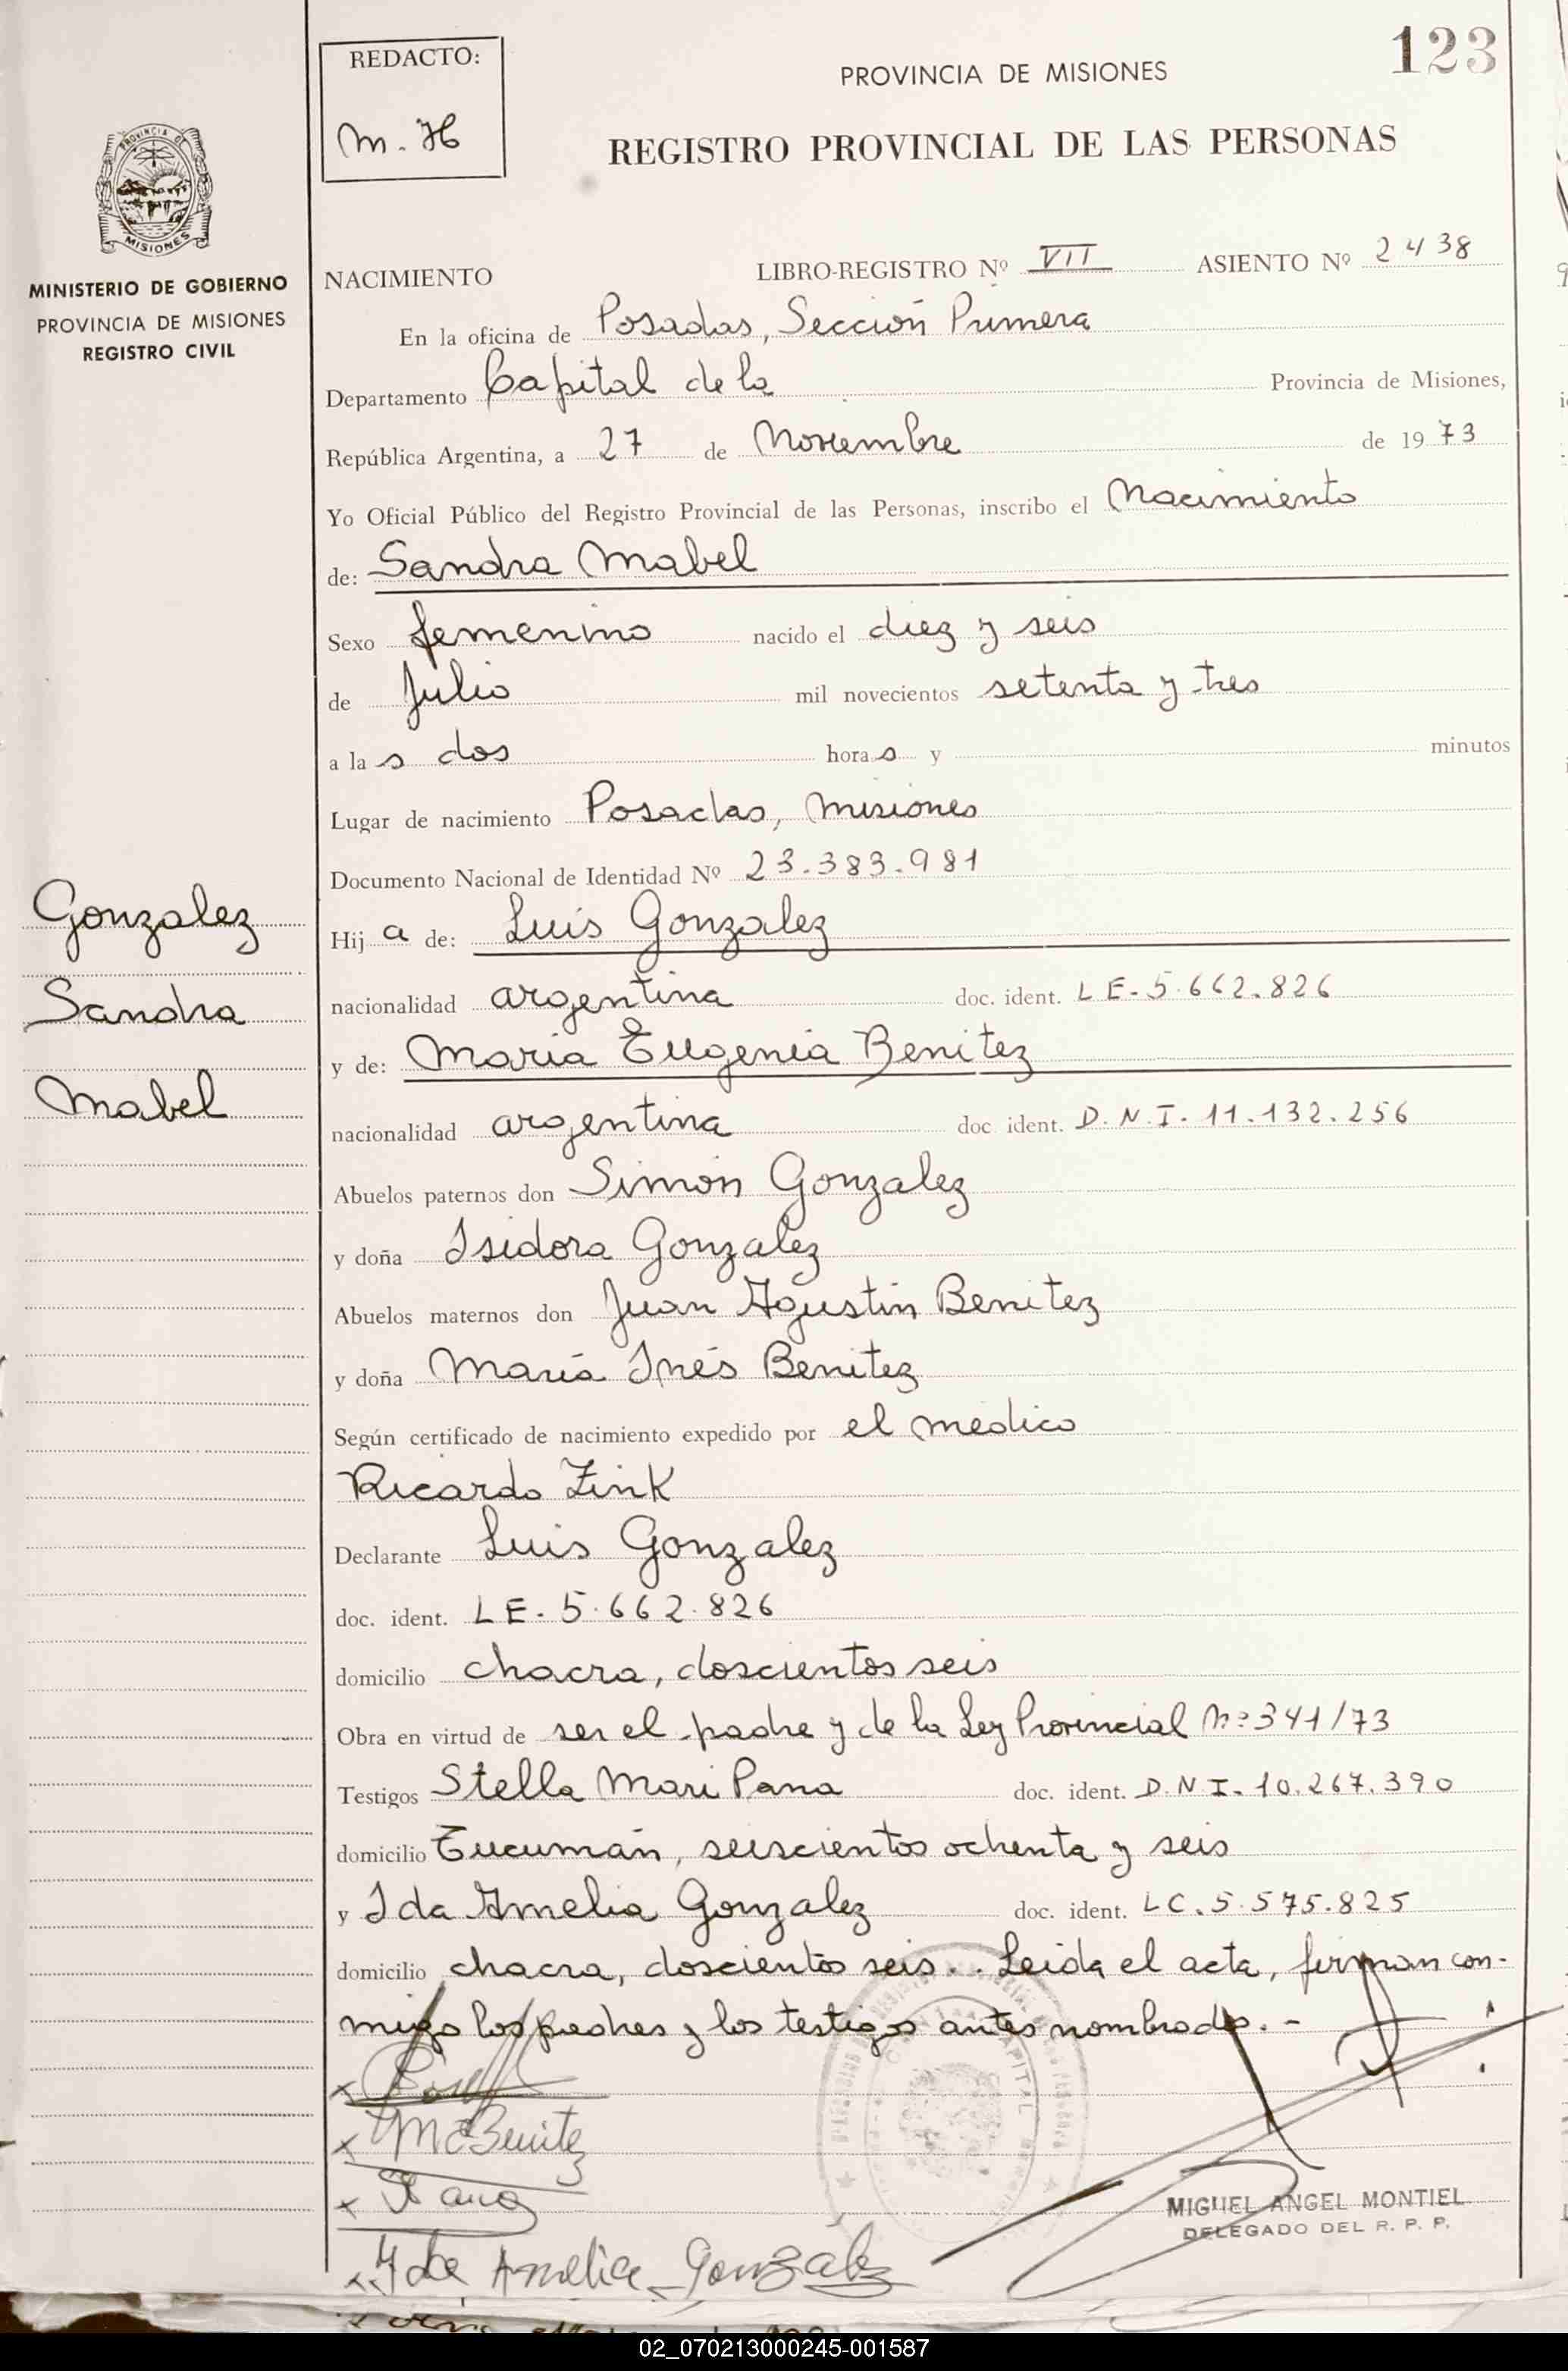 123
REDACTO:
M. H
PROVINCIA DE MISIONES
REGISTRO PROVINCIAL DE LAS PERSONAS
PROVINCIA DE
MISIONES
MINISTERIO DE GOBIERNO
PROVINCIA DE MISIONES
REGISTRO CIVIL
NACIMIENTO LIBRO-REGISTRO Nº VII ASIENTO Nº 2438
En la oficina de Posadas, Sección Primera
Departamento Capital de la Provincia de Misiones,
República Argentina, a 27 de Noviembre de 1973
Yo Oficial Público del Registro Provincial de las Personas, inscribo el Nacimiento
de: Sandra Mabel
Sexo femenino nacido el diez y seis
de Julio mil novecientos setenta y tres
a la s dos hora s y minutos
Lugar de nacimiento Posadas, Misiones
Documento Nacional de Identidad Nº 23.383.981
Gonzalez
Sandra
Mabel
Hij a de: Luis Gonzalez
nacionalidad argentina doc. ident. L E. 5.662.826
y de: Maria Eugenia Benitez
nacionalidad argentina doc. ident. D.N.I. 11.132.256
Abuelos paternos don Simón Gonzalez
y doña Isidora Gonzalez
Abuelos maternos don Juan Agustín Benitez
y doña María Inés Benitez
Según certificado de nacimiento expedido por el médico
Ricardo Zink
Declarante Luis Gonzalez
doc. ident. L E. 5.662.826
domicilio chacra, doscientos seis
Obra en virtud de ser el padre y de la Ley Provincial Nº 341/73
Testigos Stella Mari Pana doc. ident. D.N.I. 10.267.390
domicilio Tucumán, seiscientos ochenta y seis
y Ida Amelia Gonzalez doc. ident. LC. 5.575.825
domicilio chacra, doscientos seis.. Leida el acta, firman con-
migo los padres y los testigos antes nombrado. -
M E Benitez
Pana
Ida Amelia Gonzalez
CAPITAL
MIGUEL ANGEL MONTIEL
DELEGADO DEL R. P. P.
02_070213000245-001587